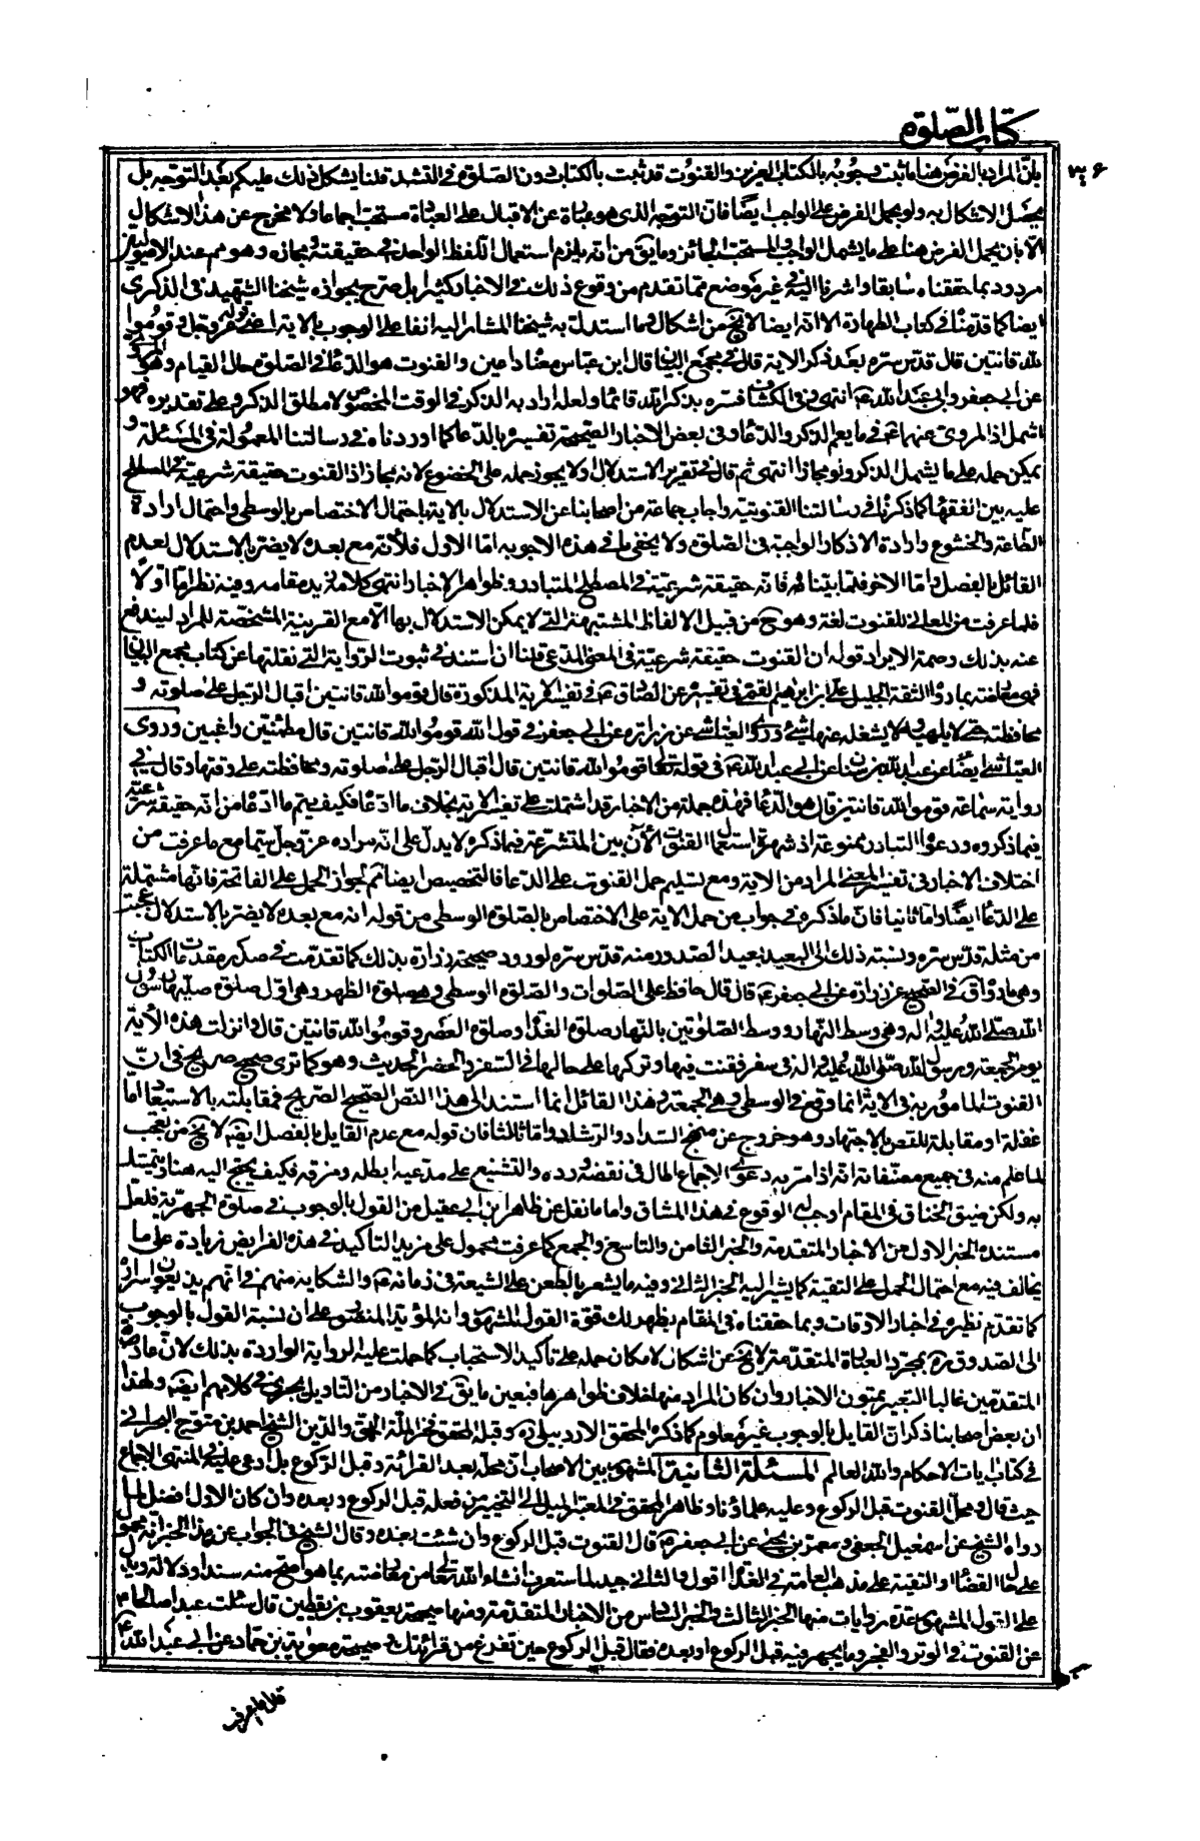 كتاب الصّلوة
بانّ المراد بالفرض هنا ما ثبت وجوبه بالكتاب العزيز والقنوت قد ثبت بالكتاب دون الصّلوة في التشهد قلنا يشكل ذلك عليكم بعد التوجه بل
يحصل الاشكال به ولو بحمل الفرض على الواجب ايضًا فان التوجه الذي هو عبارة عن الاقبال على العبادة مستحبّ اجماعا ولا مخرج عن هذا الاشكال
الا بان يحمل الفرض هنا على ما يشمل الواجب والمستحب وما يق من انه يلزم استعمال اللفظ الواحد في حقيقته ومجازه وهو مم عند الاصوليين
مردود بما حققناه سابقا واشرنا اليه في غير موضع مما تقدم من وقوع ذلك في الاخبار كثيرا بل صرح بجوازه شيخنا الشهيد في الذكرى
ايضا كما قدمنا في كتاب الطهارة الا انه ايضا لا يخ من اشكال وما استدل به شيخنا المشار اليه انفا على الوجوب بالاية اعني قوله عز وجل وقوموا
لله قانتين قال قدس سره بعد ذكر الاية قال في مجمع البيان قال ابن عباس معناه داعين والقنوت هو الدعاء في الصلوة حال القيام وهو المروي
عن ابي جعفر وابي عبد الله ع انتهى وفي الكشاف فسره بذكر الله قائما ولعله اراد به الذكر في الوقت المخصوص لا مطلق الذكر وعلى تقديره فهو
اشمل اذ المروي عنهما ع في ما يعم الذكر والدعاء وفي بعض الاخبار الصحيحة تفسيره بالدعاء كما اوردناه في رسالتنا المعمولة في المسئلة و
يمكن حمله على ما يشمل الذكر ولو مجازا انتهى ثم قال في تقرير الاستدلال ولا يجوز حمله على الخضوع لانه مجاز اذ القنوت حقيقة شرعية في المصطلح
عليه بين الفقهاء كما ذكرنا في رسالتنا القنوتية واجاب جماعة من اصحابنا عن الاستدلال بالاية باحتمال الاختصاص بالوسطى واحتمال ارادة
الطاعة والخشوع وارادة الاذكار الواجبة في الصلوة ولا يخفى ما في هذه الاجوبه امّا الاول فلأنه مع بعده لا يضر بالاستدلال لعدم
القائل بالفصل واما الاخر فلما بيناه فانه حقيقة شرعية في المصطلح المتبادر وظواهر الاخبار انتهى كلامه زيد مقامه وفيه نظر امّا اولا
فلما عرفت من المعاني للقنوت لغة وهو ح من قبيل الالفاظ المشتبهة التي لا يمكن الاستدلال بها الا مع القرينة المشخصة للمراد ليندفع
عنه بذلك وصمة الايراد قوله ان القنوت حقيقة شرعية في المعنى المدعى قلنا ان استند في ثبوت الى الرواية التي نقلتها عن كتاب مجمع البيان
فهي معارضته بما رواه الثقة الجليل علي بن ابراهيم القمي في تفسيره عن الصادق ع في تفسير الاية المذكورة قال قوموا لله قانتين اقبال الرجل على صلوته و
محافظته حتى لا يلهيه ولا يشغله عنها شئ وروى العياشي عن زرارة عن ابي جعفر ع في قول الله قوموا لله قانتين قال مطمئنين راغبين وروى
العياشي ايضًا عن عبد الله بن سنان عن ابي عبد الله ع في قوله تعالى وقوموا لله قانتين قال اقبال الرجل على صلوته ومحافظته على وقتها وقال في
رواية سماعة وقوموا لله قانتين قال هو الدعاء فهذه جملة من الاخبار قد اشتملت على تفسير الاية بخلاف ما ادعاه فكيف يتم ما ادعاه من انه حقيقة شرعية
فيما ذكروه ودعوى التبادر ممنوعة اذ شهرة استعمال القنوت الآن بين المتشرعة فيما ذكره لا يدل على انه مراده عز وجل سيما مع ما عرفت من
اختلاف الاخبار في تفسير المعنى المراد من الاية ومع تسليم حمل القنوت على الدعاء فالتخصيص ايضا مم لجواز الحمل على الفاتحة فانها مشتملة
على الدعاء ايضًا واما ثانيا فان ما ذكره في جواب من حمل الاية على الاختصاص بالصلوة الوسطى من قوله انه مع بعده لا يضر بالاستدلال عجيب
من مثله قدس سره ونسبته ذلك الى البعيد بعيد الصدور منه قدس سره لورود صحيحة زرارة بذلك كما تقدمت في صدر مقدمات الكتاب
وهي ما رواه في الصحيح عن زرارة عن ابي جعفر ع قال قال حافظوا على الصلوات والصلوة الوسطى وهي صلوة الظهر وهي اول صلوة صليها رسول
الله صلى الله عليه واله وهي وسط النهار ووسط الصلوتين بالنهار صلوة الغداة وصلوة العصر وقوموا لله قانتين قال وانزلت هذه الاية
يوم الجمعة ورسول الله صلى الله عليه واله في سفر فقنت فيها وتركها على حالها في السفر والحضر الحديث وهو كما ترى صحيح صريح في ان
القنوت المامور به في الاية انما وقع في الوسطى وهي الجمعة وهذا القائل انما استند الى هذا النص الصحيح الصريح فمقابلته بالاستبعاد اما
غفلة او مقابلة للنص بالاجتهاد وهو خروج عن منهج السداد والرشاد واما ثالثا فان قوله مع عدم القايل بالفصل ايض لا يخ من تعجب
لما علم منه في جميع مصنفاته انه اذا مر به دعوى الاجماع اطال في نقضه ورده والتشنيع على مدعيه ابطله ومزقه فكيف يحتج اليه هنا ويتمسك
به ولكن ضيق الخناق في المقام اوجب له الوقوع في هذا المشاق واما ما نقل عن ظاهر ابن ابي عقيل من القول بالوجوب في صلوة الجهرية فلعل
مستنده الخبر الاول من الاخبار المتقدمة والخبر الثامن والتاسع والجمع كما عرفت محمول على مزيد التاكيد في هذه الفرايض زيادة على ما
يخالف فيه مع احتمال الحمل على التقية كما يشير اليه الخبر الثاني وفيه ما يشعر بالطعن على الشيعة في زمانه ع والشكاية منهم في انهم يذيعون اسراره
كما تقدم نظيره في اخبار الاوقات وبما حققناه في المقام يظهر لك قوة القول المشهور وانه المؤيد المنصور على ان نسبة القول بالوجوب
الى الصدوق ره بمجرد العبارة المتقدمة لا يخ عن اشكال لامكان حمله على تأكيد الاستحباب كما حملت عليه الرواية الواردة بذلك لان عادة
المتقدمين غالبا التعبير بمتون الاخبار وان كان المراد منها خلاف ظواهرها فبعين ما يق في الاخبار من التاويل يجري في كلامهم ايض ولهذا
ان بعض اصحابنا ذكر ان القايل بالوجوب غير معلوم كما ذكره المحقق الاردبيلي ره وقبله المحقق فخر الملة والحق والدين الشيخ احمد بن متوج البحراني
في كتاب ايات الاحكام والله العالم المسئلة الثانية المشهور بين الاصحاب ان محله بعد القرائة وقبل الركوع بل ادعى عليه في المنتهى الاجماع
حيث قال ومحل القنوت قبل الركوع وعليه علماؤنا وظاهر المحقق في المعتبر الميل الى التخيير من فعله قبل الركوع وبعده وان كان الاول افضل لما
رواه الشيخ عن اسمعيل الجعفي ومعمر بن يحيى عن ابي جعفر ع قال القنوت قبل الركوع وان شئت بعده وقال الشيخ في الجواب عن هذا الخبر انه محمول
على حال القضاء او التقية على مذهب العامة في الغداة اقول والثاني جيد لما ستعرف انشاء الله تعالى من معارضته بما هو اصح منه سندا ودلالة ويدل
على القول المشهور عدة روايات منها الخبر الثالث والخبر السادس من الاخبار المتقدمة ومنها صحيحة يعقوب بن يقطين قال سئلت عبدا صالحا ع
عن القنوت في الوتر والفجر وما يجهر فيه قبل الركوع او بعده فقال قبل الركوع حين تفرغ من قرائتك وصحيحة معوية بن عمار عن ابي عبد الله ع
قال ما اعرف